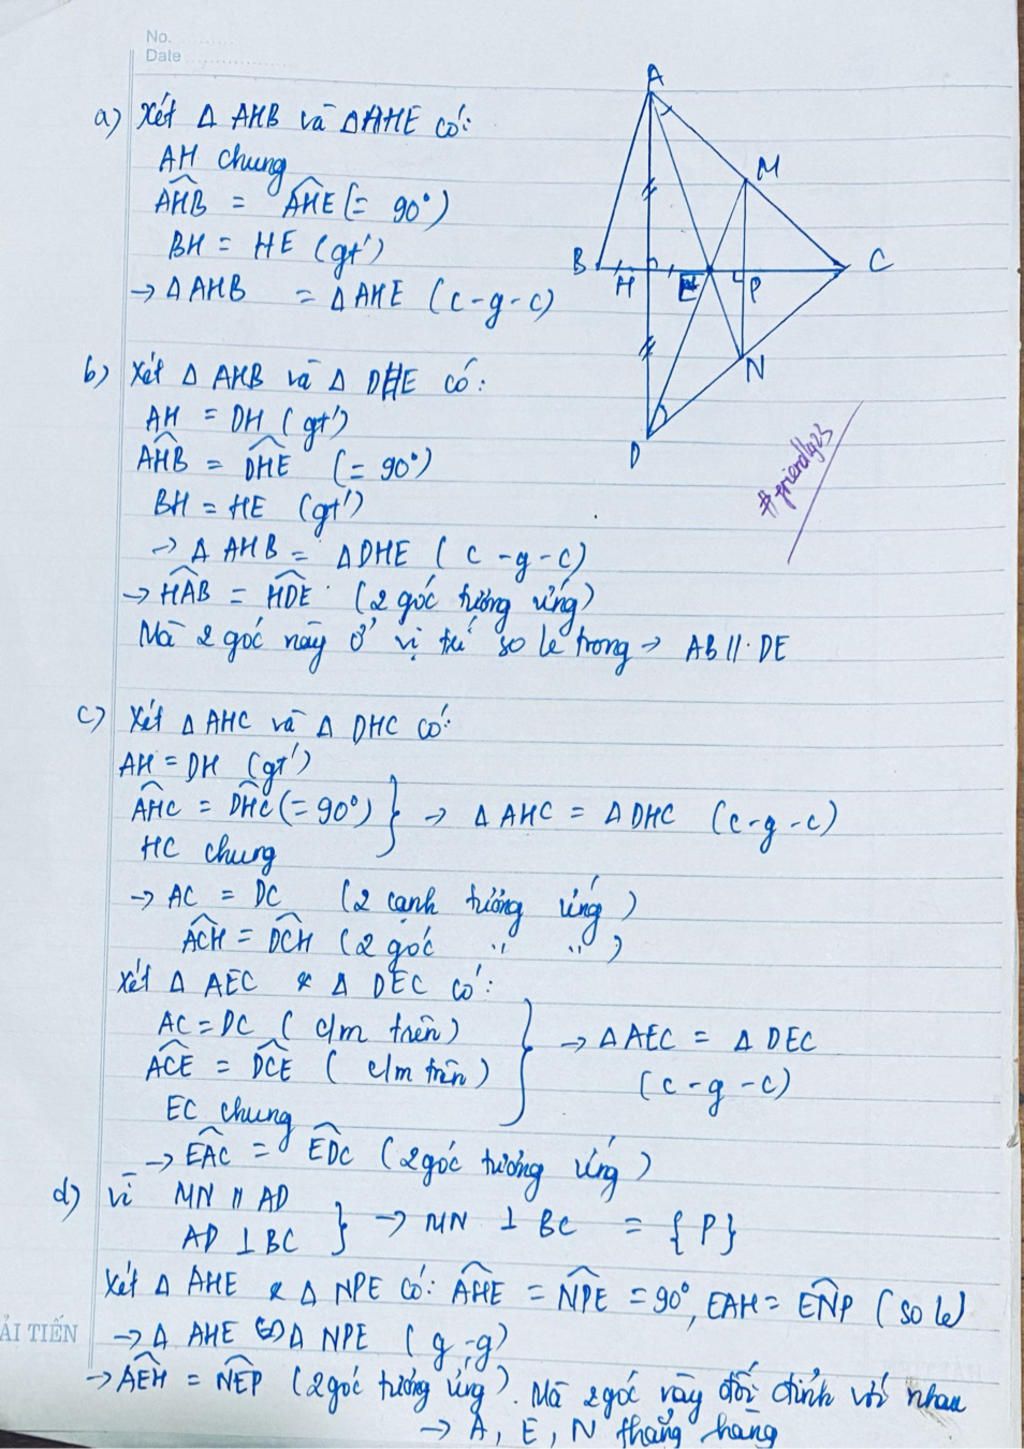 No.
Date
a) Xét Δ AHB và Δ AHE có:
AH chung
AHB = AHE (= 90°)
BH = HE (gt)
→ Δ AHB = Δ AHE (c-g-c)
b) Xét Δ AHB và Δ DHE có:
AH = DH (gt)
AHB = DHE (= 90°)
BH = HE (gt)
→ Δ AHB = Δ DHE (c-g-c)
→ HAB = HDE (2 góc tương ứng)
Mà 2 góc này ở vị trí so le trong → AB // DE
c) Xét Δ AHC và Δ DHC có:
AH = DH (gt)
AHC = DHC (= 90°) } → Δ AHC = Δ DHC (c-g-c)
HC chung
→ AC = DC (2 cạnh tương ứng)
ACH = DCH (2 góc " ")
Xét Δ AEC & Δ DEC có:
AC = DC (c/m trên) } → Δ AEC = Δ DEC
ACE = DCE (c/m trên) (c-g-c)
EC chung
→ EAC = EDC (2 góc tương ứng)
d) Vì MN // AD
AD ⊥ BC } → MN ⊥ BC = {P}
Xét Δ AHE & Δ NPE có: AHE = NPE = 90°, EAH = ENP (so le)
→ Δ AHE ∽ Δ NPE (g-g)
→ AEH = NEP (2 góc tương ứng). Mà 2 góc này đối đỉnh với nhau
→ A, E, N thẳng hàng
A
M
B
H
E
P
C
N
D
#friendly23
ẢI TIẾN